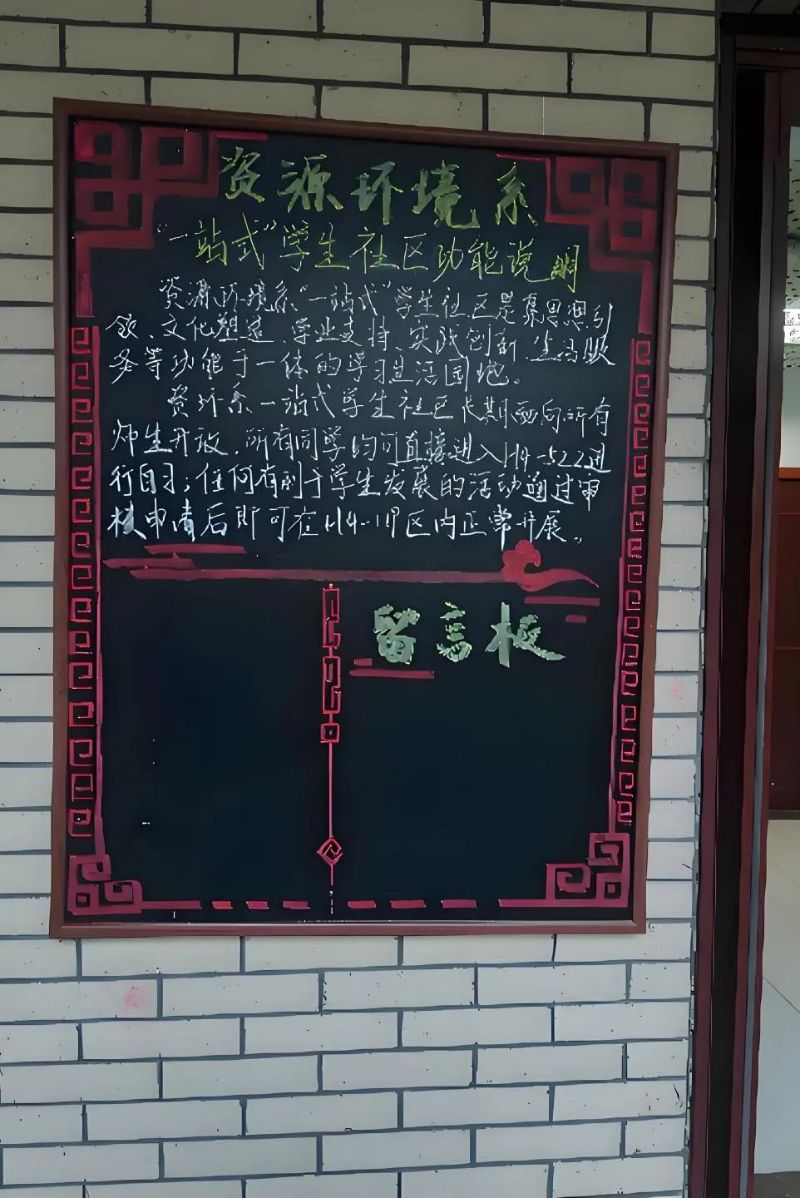 资源环境系
"一站式"学生社区功能说明
资源环境系"一站式"学生社区是集思想引
领、文化塑造、学业支持、实践创新、生活服
务等功能于一体的学习生活园地。
资环系一站式学生社区长期面向所有
师生开放,所有同学均可直接进入H4-522进
行自习;任何有利于学生发展的活动通过审
核申请后即可在H4-117区内正常开展。
留言板